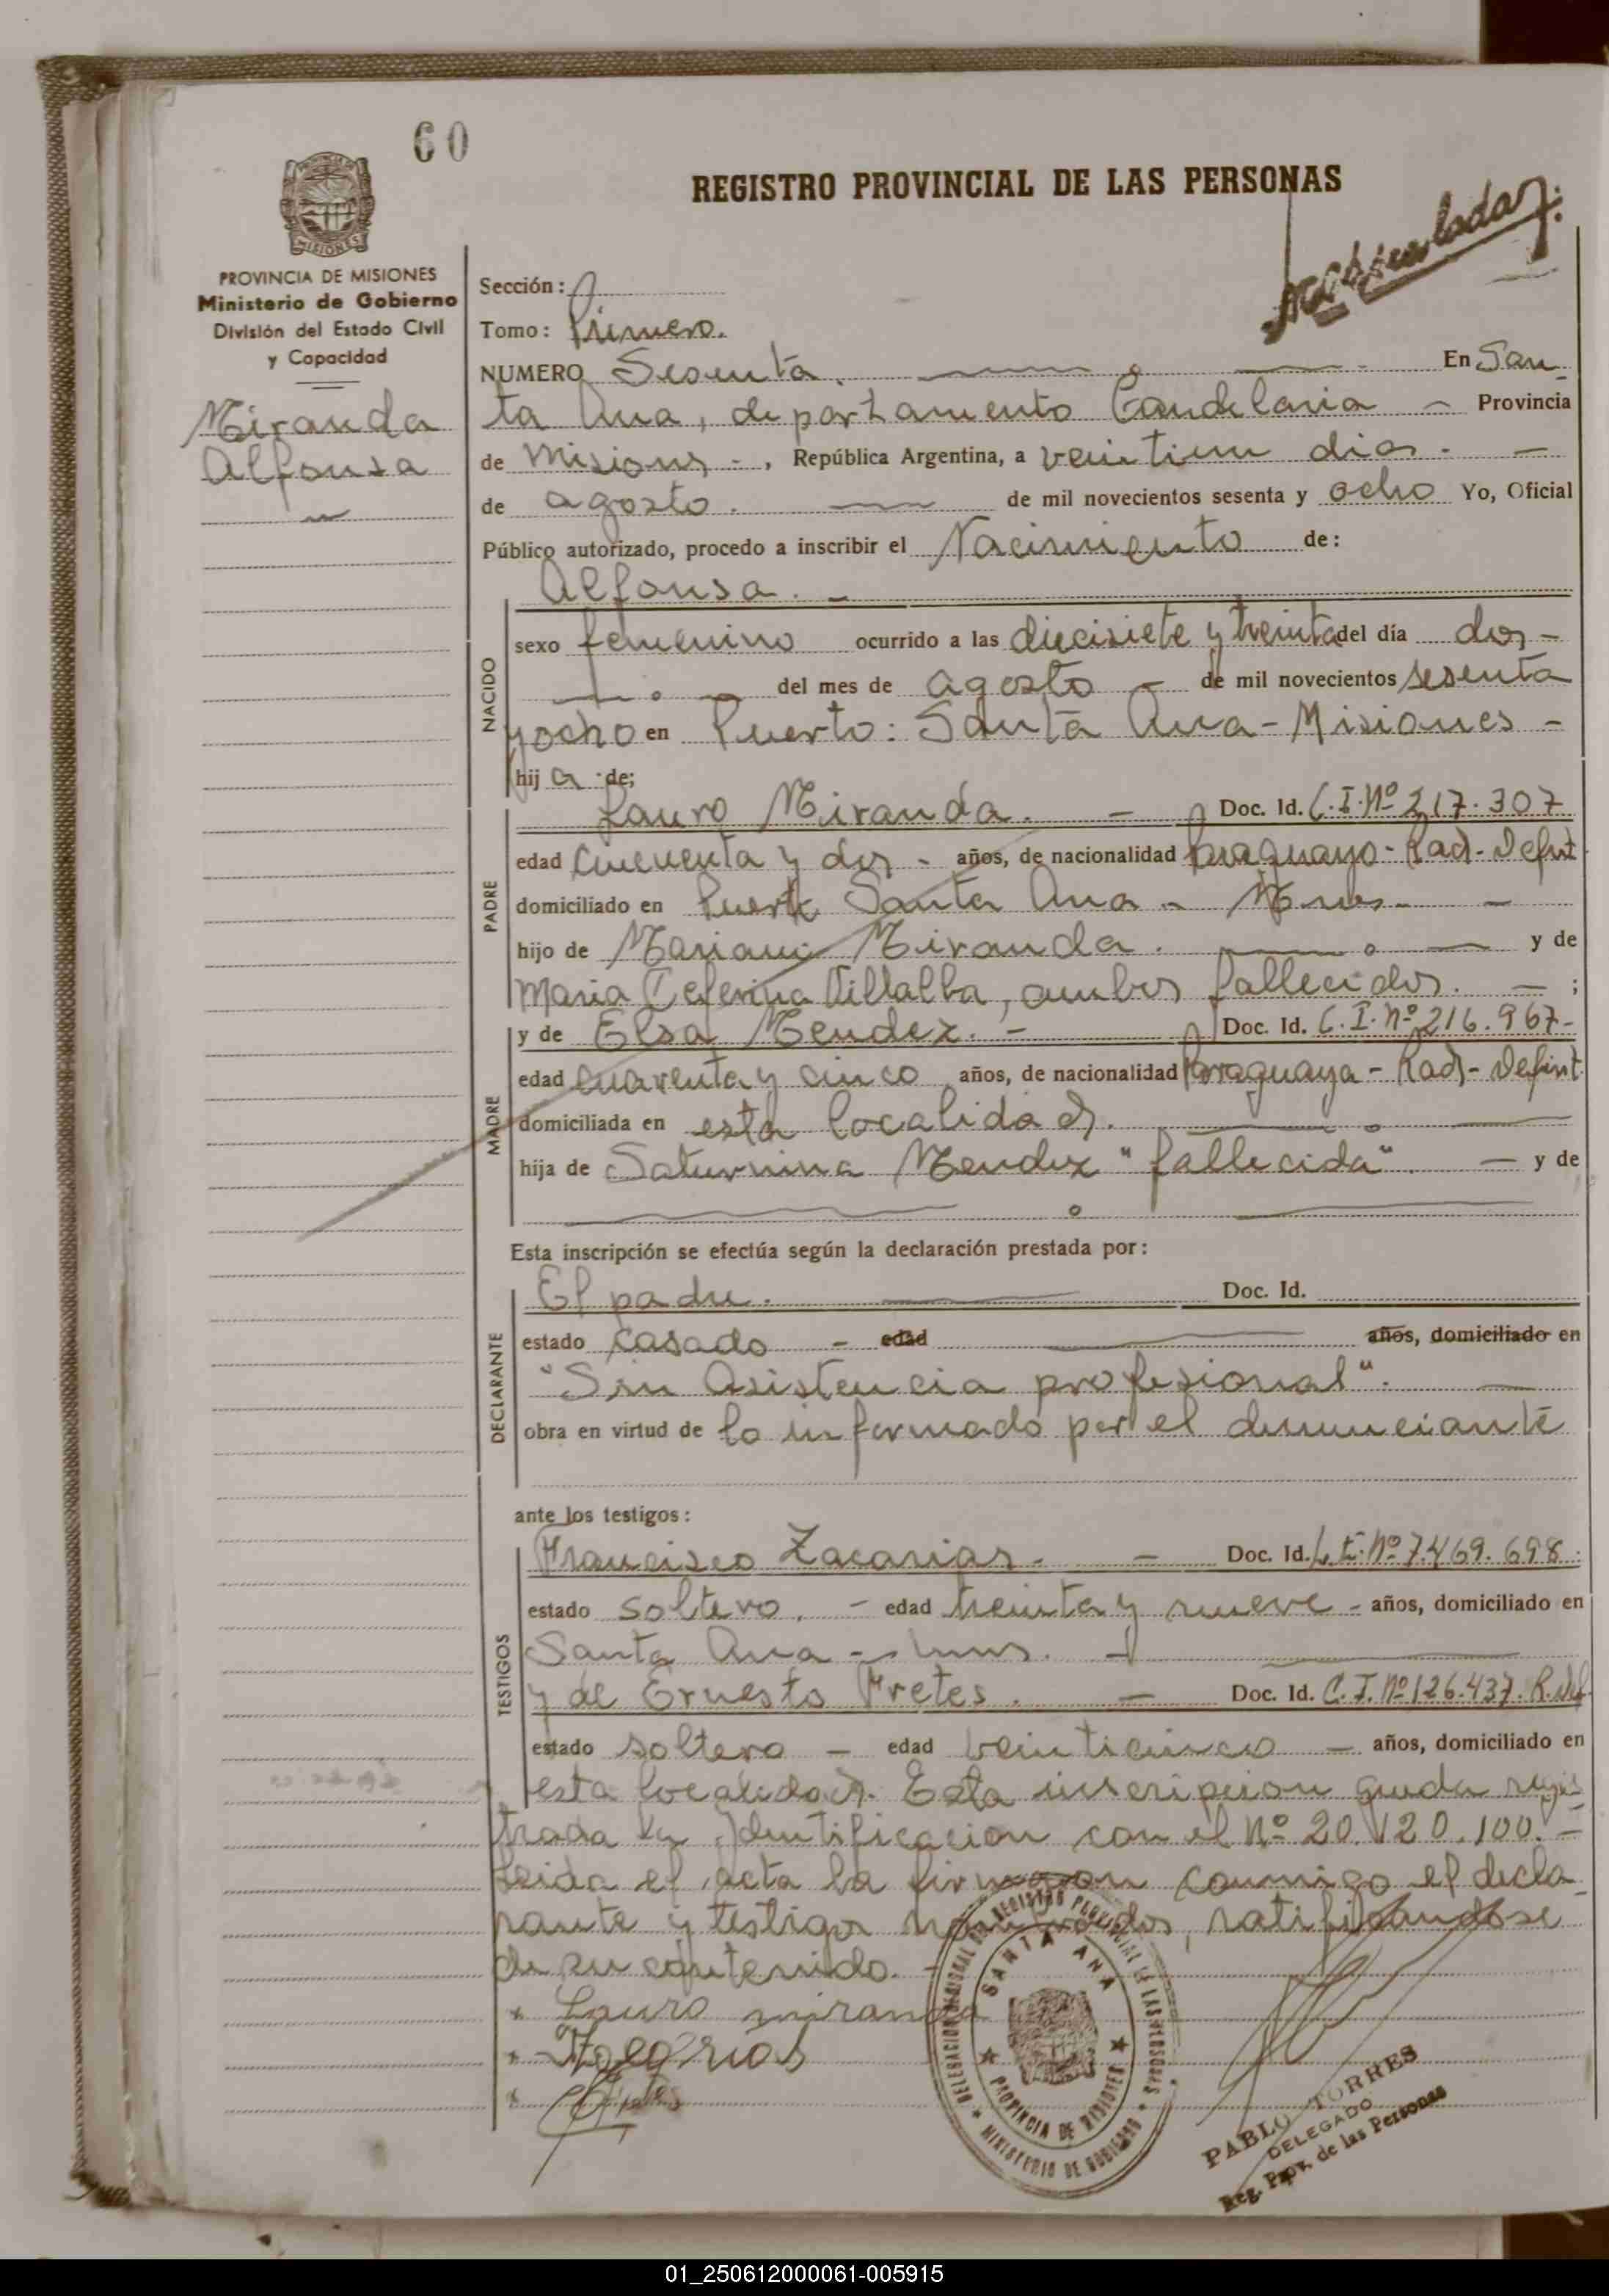 60
REGISTRO PROVINCIAL DE LAS PERSONAS
PROVINCIA DE MISIONES
MISIONES
PROVINCIA DE MISIONES
Ministerio de Gobierno
División del Estado Civil
y Capacidad
Miranda
Alfonsa
Sección:
Tomo: Primero.
NUMERO Sesenta. En San
ta Ana, departamento Candelaria - Provincia
de Misiones -, República Argentina, a veintiun dias. -
de agosto. de mil novecientos sesenta y ocho Yo, Oficial
Público autorizado, procedo a inscribir el Nacimiento de:
Alfonsa. -
NACIDO
sexo femenino ocurrido a las diecisiete y treinta del día dos -
del mes de agosto - de mil novecientos sesenta
y ocho en Puerto: Santa Ana - Misiones -
hija de;
PADRE
Lauro Miranda. - Doc. Id. C.I.Nº 217.307
edad cincuenta y dos - años, de nacionalidad Paraguayo - Rad - Definit
domiciliado en Puerto Santa Ana - Mnes - -
hijo de Mariano Miranda. y de
Maria Ceferina Villalba, ambos fallecidos. - ;
MADRE
y de Elsa Mendez. - Doc. Id. C.I.Nº 216.967-
edad cuarenta y cinco años, de nacionalidad Paraguaya - Rad - Definit.
domiciliada en esta localidad.
hija de Saturnina Mendez "fallecida". - y de
Esta inscripción se efectúa según la declaración prestada por:
DECLARANTE
El padre. Doc. Id.
estado casado - edad años, domiciliado en
"Sin Asistencia profesional".
obra en virtud de lo informado por el denunciante
ante los testigos:
TESTIGOS
Francisco Zacarias. - Doc. Id. L.E.Nº 7.469.698.
estado soltero. - edad treinta y nueve - años, domiciliado en
Santa Ana - Mnes. -
y de Ernesto Fretes. - Doc. Id. C.I.Nº 126.437. R.Def
estado soltero - edad veinticinco - años, domiciliado en
esta localidad. Esta inscripcion queda regis
trada en Identificacion con el Nº 20.120.100. -
Leida el acta la firman conmigo el decla
rante y testigos nombrados, ratificandose
de su contenido. -
Lauro miranda
DELEGACION REGISTRO PROVINCIAL DE LAS PERSONAS
SANTA ANA
PROVINCIA DE MISIONES
MINISTERIO DE GOBIERNO
PABLO TORRES
DELEGADO
Reg. Prov. de las Personas
01_250612000061-005915